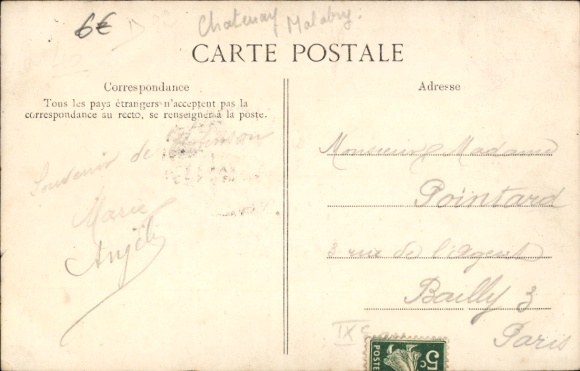 6€
Chatenay Malabry.
CARTE POSTALE
Correspondance
Tous les pays étrangers n'acceptent pas la
correspondance au recto, se renseigner à la poste.
Souvenir de Robinson
Marie
Angèle
Adresse
Monsieur Madame
Pointard
3 rue de l'Agent
Bailly 3
Paris
IX
5c
POSTES